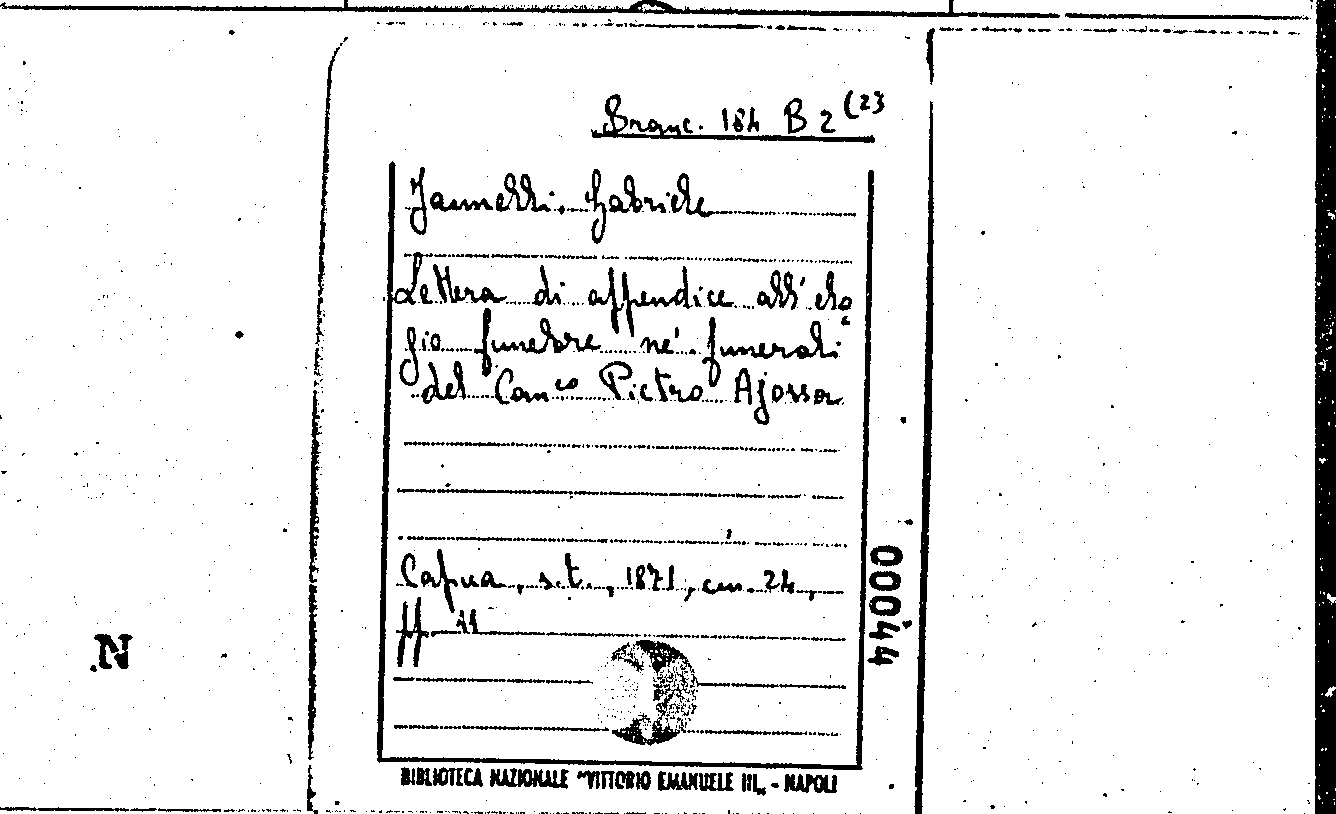 Branc. 184 B 2 (23
Jannelli. Gabriele
Lettera di appendice all' elo
gio funebre ne' funerali
del Can.co Pietro Ajossa
Capua, s.t., 1871, cm. 24,
ff. 11
00044
N
BIBLIOTECA NAZIONALE "VITTORIO EMANUELE III„ - NAPOLI